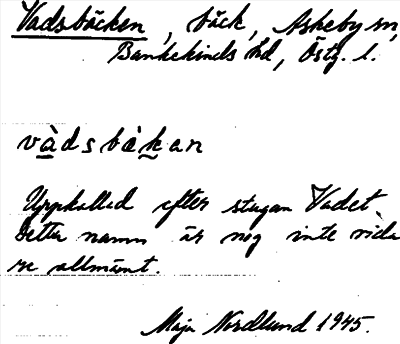 Vadsbäcken, bäck, Askeby sn,
Bankekinds hd, Östg. l.
vàdsbàkan
Uppkallad efter stugan Vadet.
Detta namn är nog inte vida
re allmänt.
Maja Nordlund 1945.